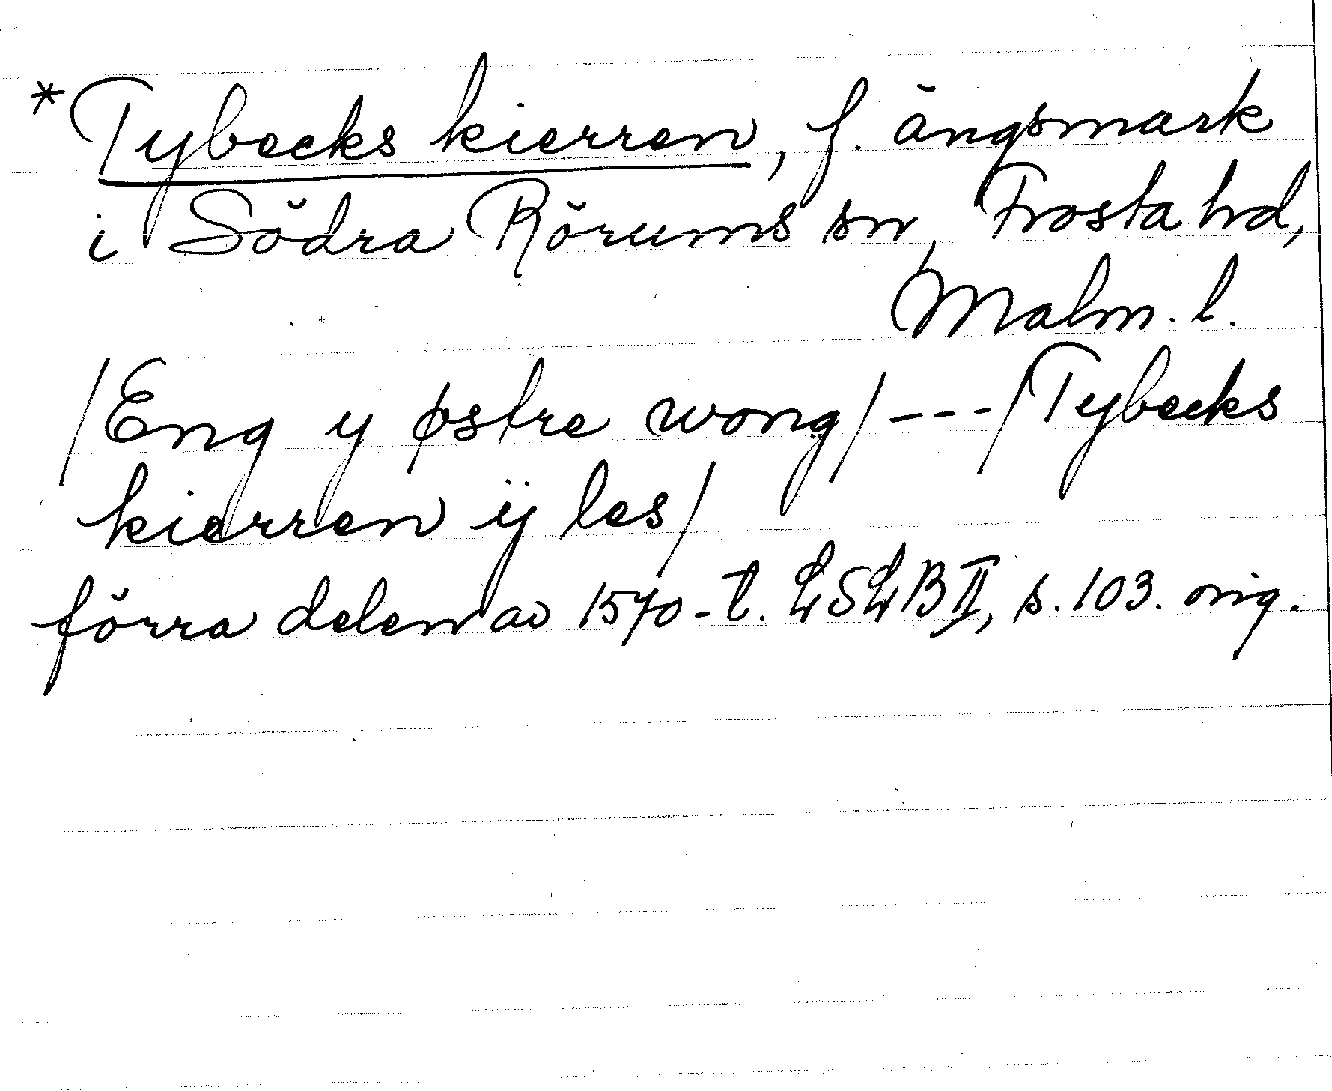 *Tybecks kierren, f. ängsmark
i Södra Rörums sn, Frosta hd,
Malm. l.
/Eng y østre wong/---/Tybecks
kierren ÿ les/
förra delen av 1570-t. LSLB II, s. 103. orig.